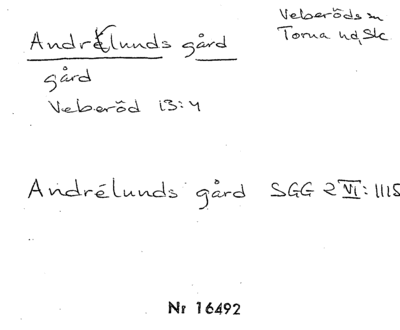 Andrélunds gård
gård
Veberöd 13:4
Veberöds sn
Torna hd, Sk
Andrélunds gård SGG 2 VI: 1115
Nr 16492